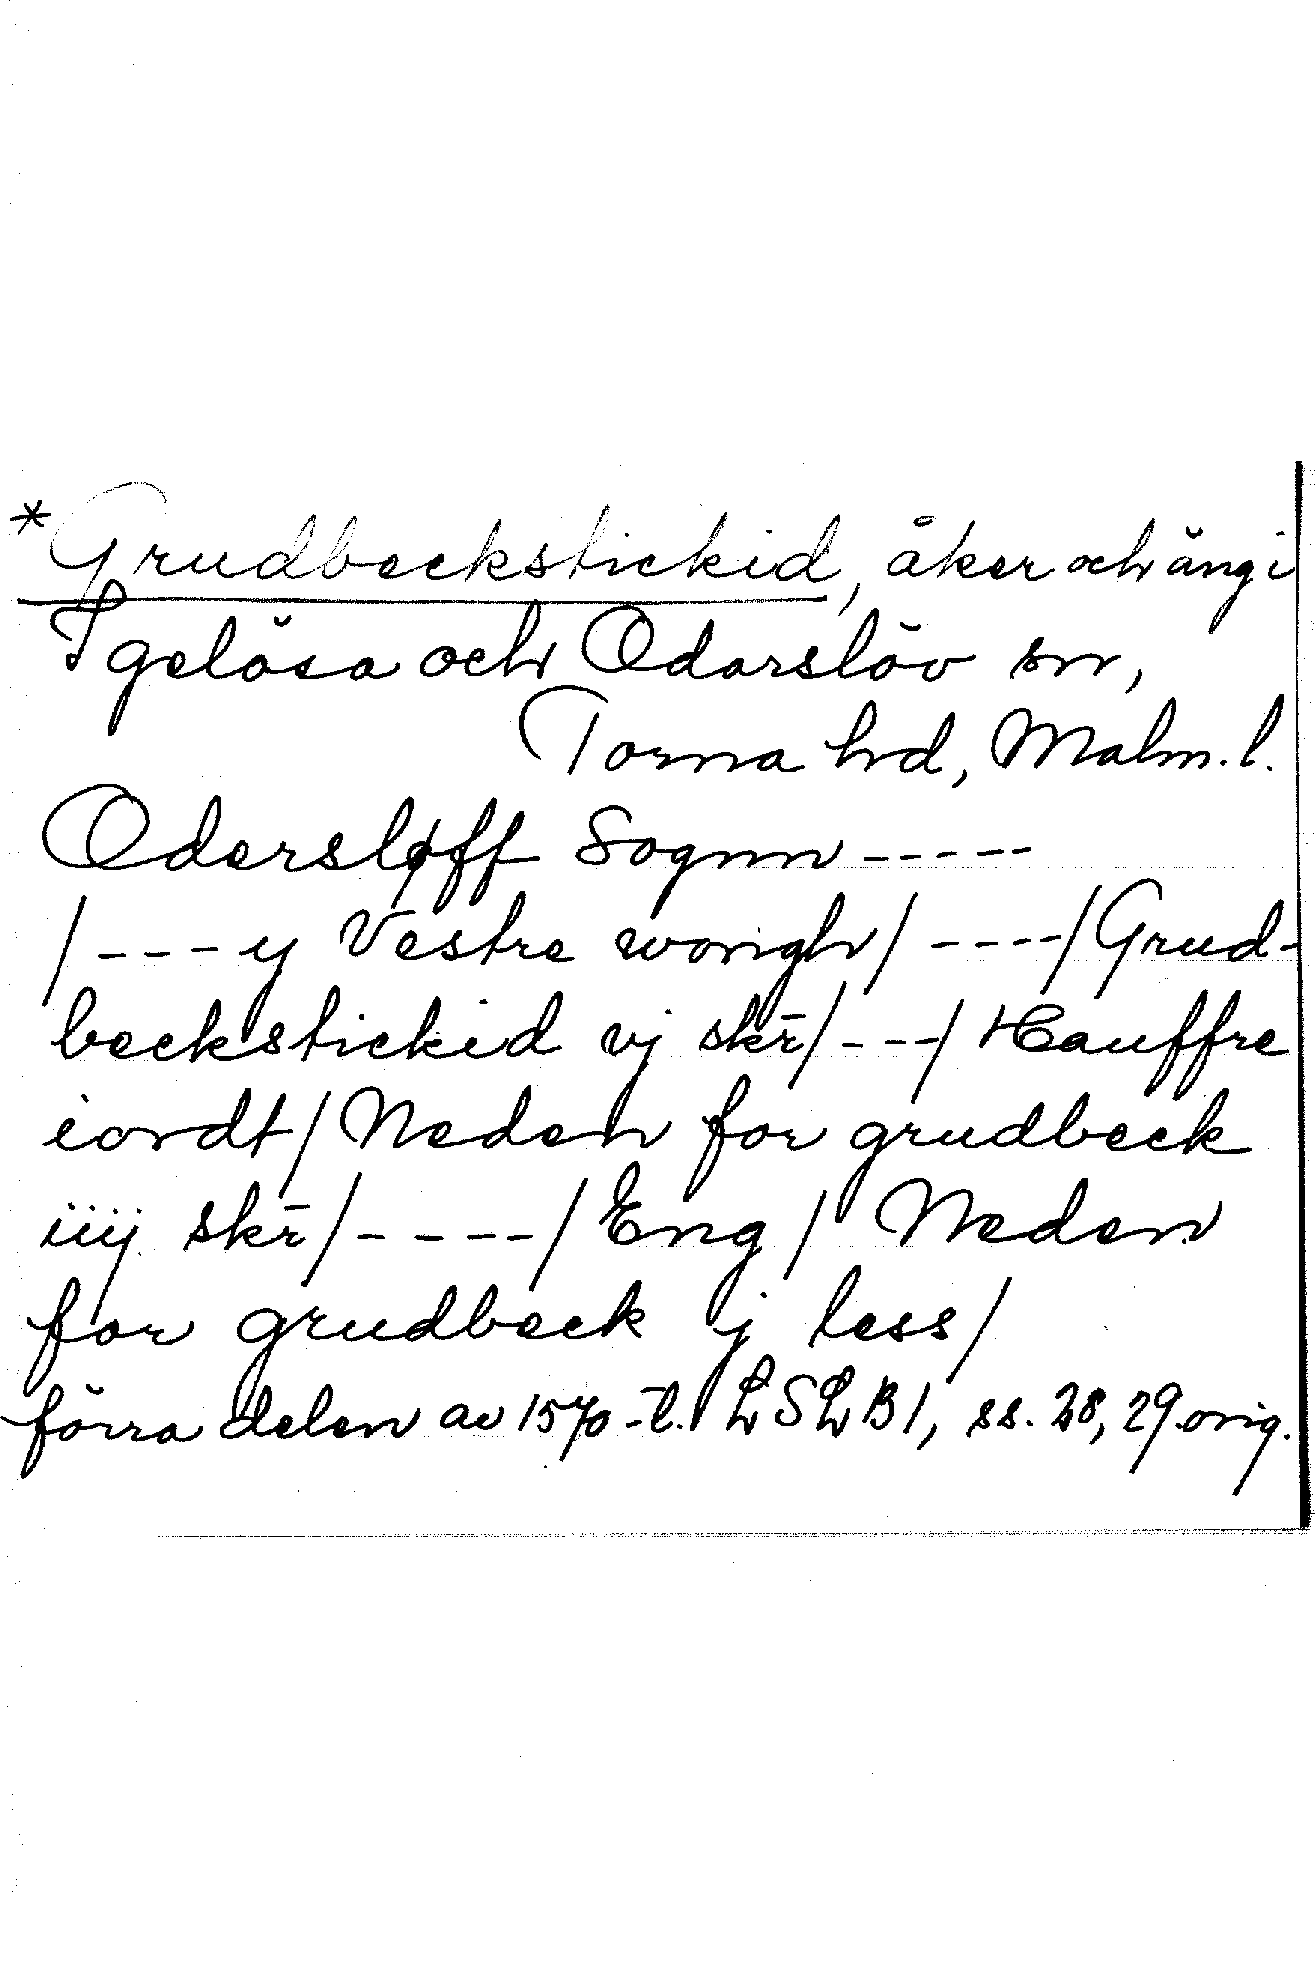 *Grudbeckstickid, åker och äng i
Igelösa och Odarslöv sn,
Torna hd, Malm. l.
Odersløff Sognn -----
/---- y Vestre wongh/ ----/ Grud-
beckstickid vj skr̄/---/ Hauffre
iordt/ Neden for grudbeck
iiij skr̄/----/ Eng/ Neden
for grudbeck ij less/
förra delen av 1570-t. LSLB1, ss. 28, 29 orig.